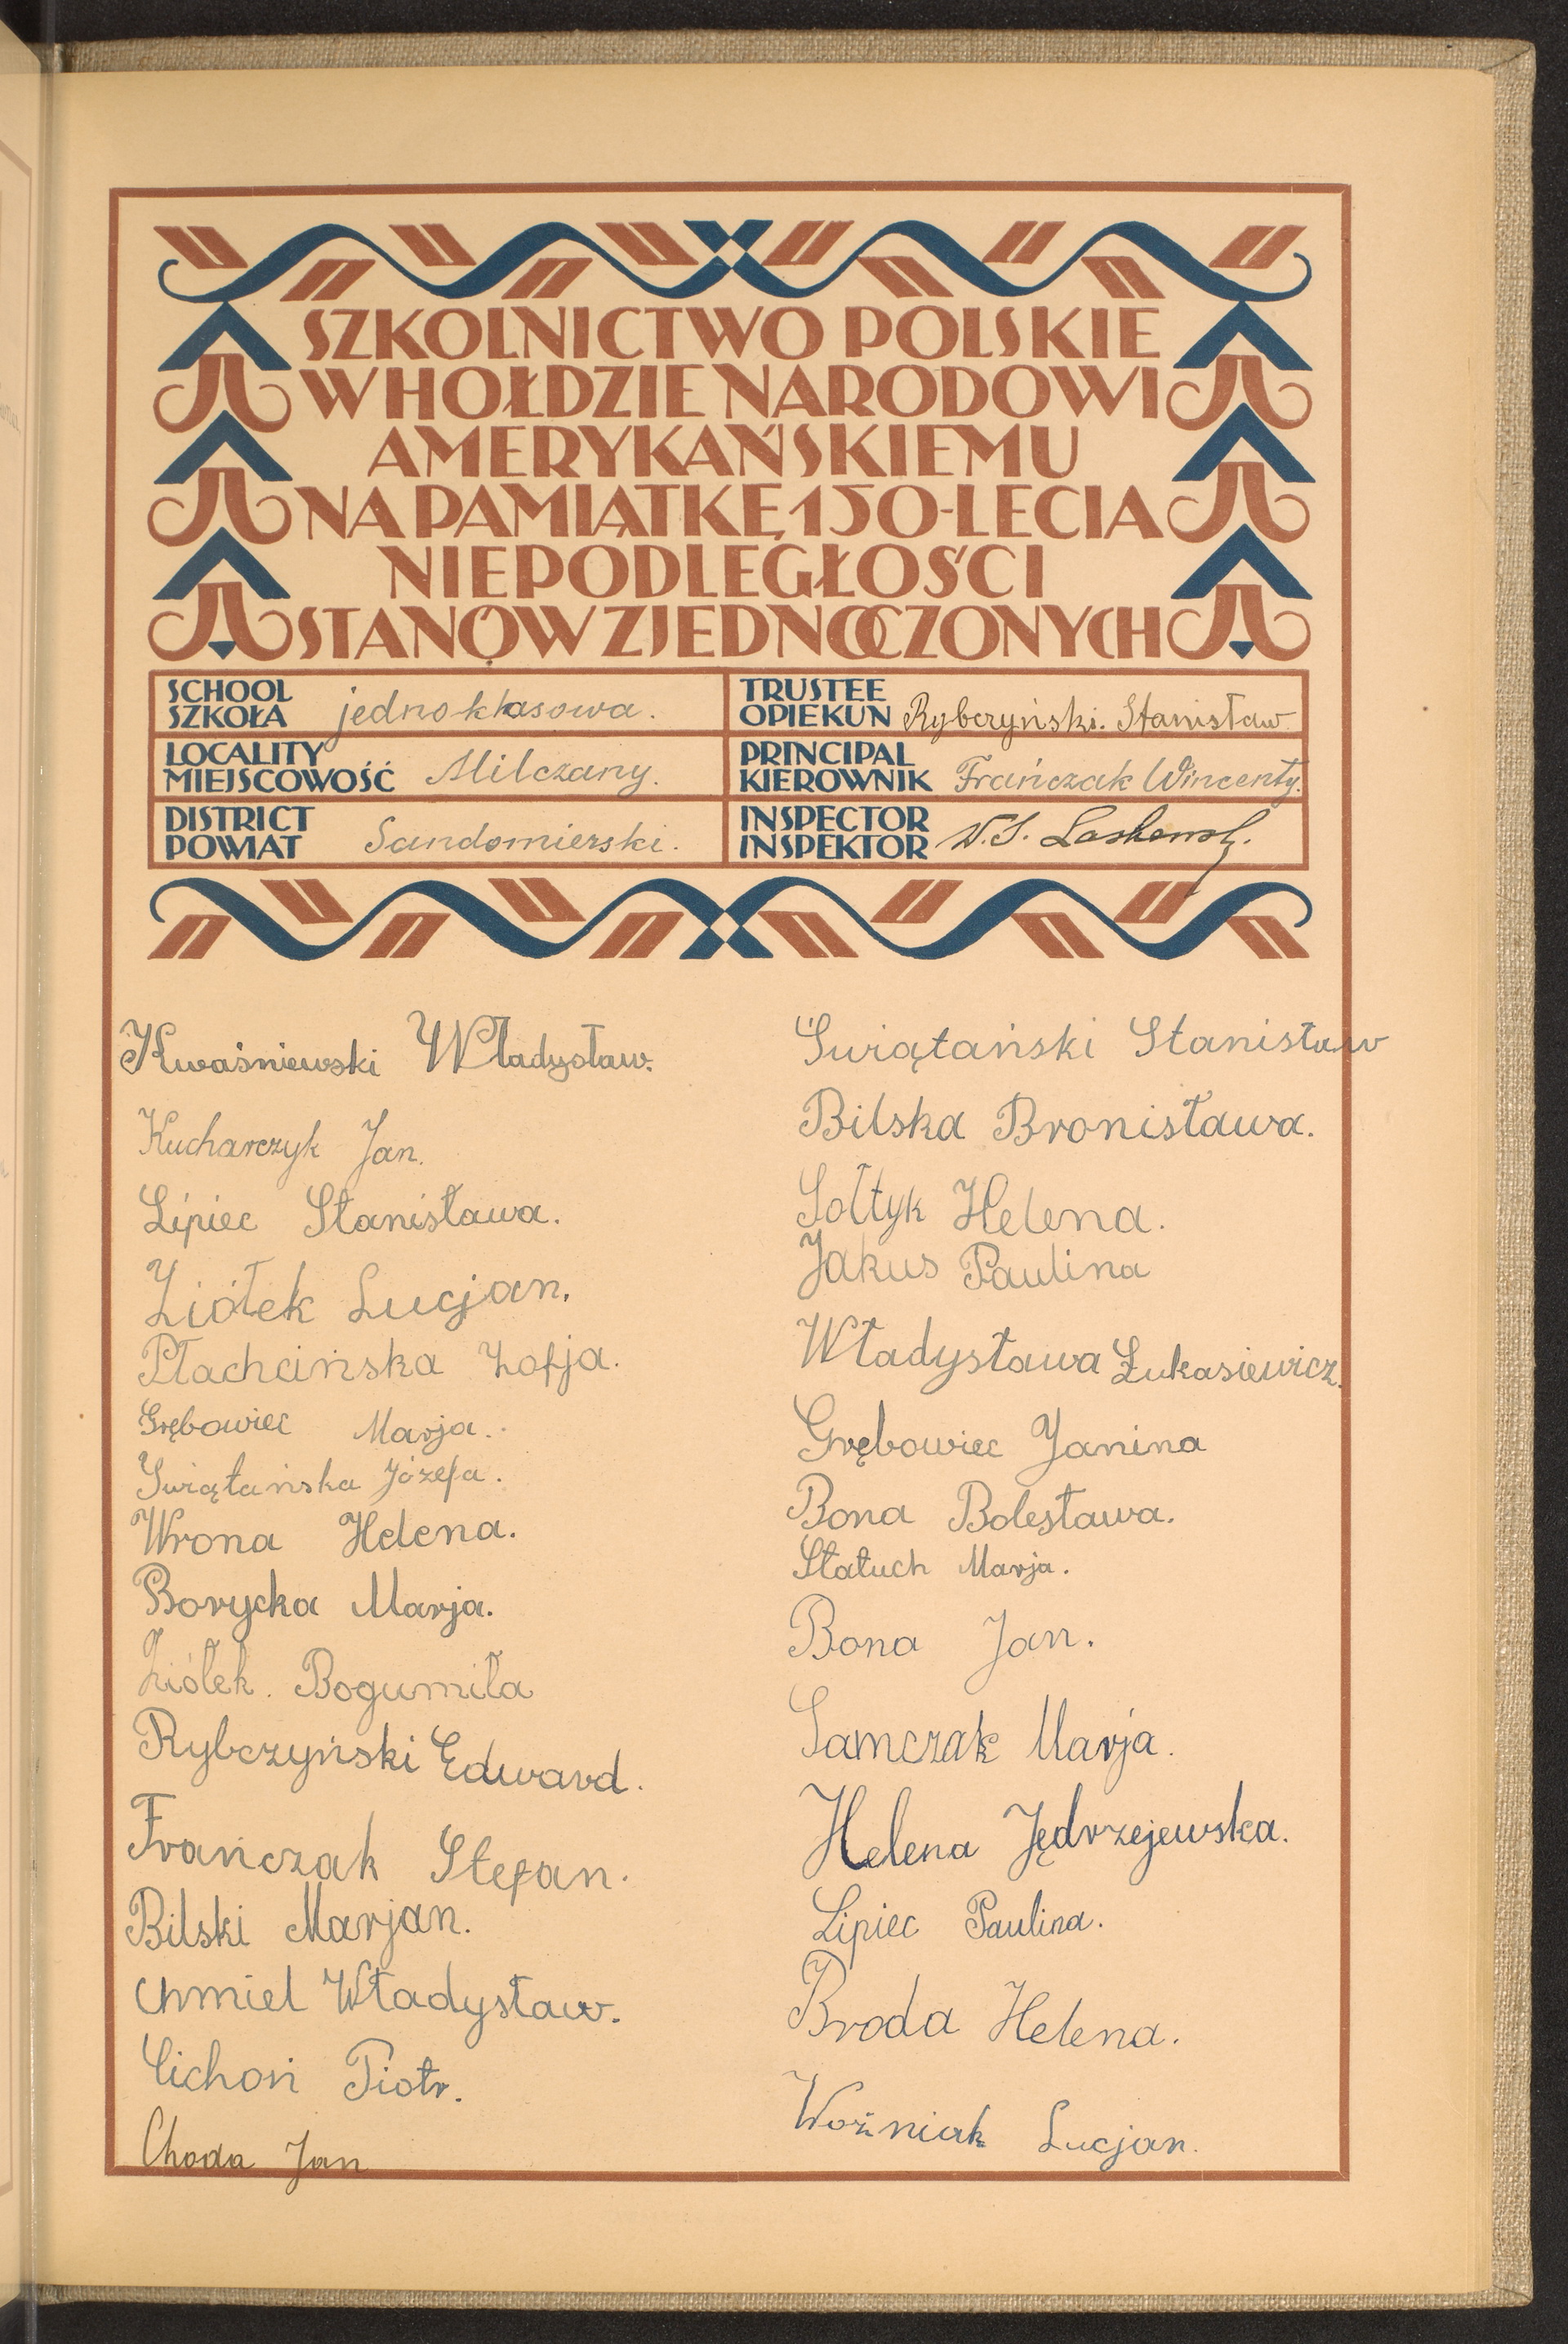 SZKOLNICTWO POLSKIE
W HOŁDZIE NARODOWI
AMERYKAŃSKIEMU
NA PAMIĄTKĘ 150-LECIA
NIEPODLEGŁOŚCI
STANÓW ZJEDNOCZONYCH
SCHOOL
SZKOŁA jednoklasowa.
TRUSTEE
OPIEKUN Rybczyński. Stanisław
LOCALITY
MIEJSCOWOŚĆ Milczany.
PRINCIPAL
KIEROWNIK Frańczak Wincenty.
DISTRICT
POWIAT Sandomierski.
INSPECTOR
INSPEKTOR W. S.
Kwaśniewski Władysław.
Kucharczyk Jan.
Lipiec Stanisława.
Ziółek Lucjan.
Płachcińska Zofja.
Grębowiec Marja.
Świątańska Józefa.
Wrona Helena.
Borycka Marja.
Ziółek. Bogumiła
Rybczyński Edward.
Frańczak Stefan.
Bilski Marjan.
Chmiel Władysław.
Cichoń Piotr.
Choda Jan
Świątański Stanisław
Bilska Bronisława.
Sołtyk Helena.
Jakus Paulina
Władysława Łukasiewicz.
Grębowiec Janina
Bona Bolesława.
Statuch Marja.
Bona Jan.
Samczak Marja.
Helena Jędrzejewska.
Lipiec Paulina.
Broda Helena.
Woźniak Lucjan.